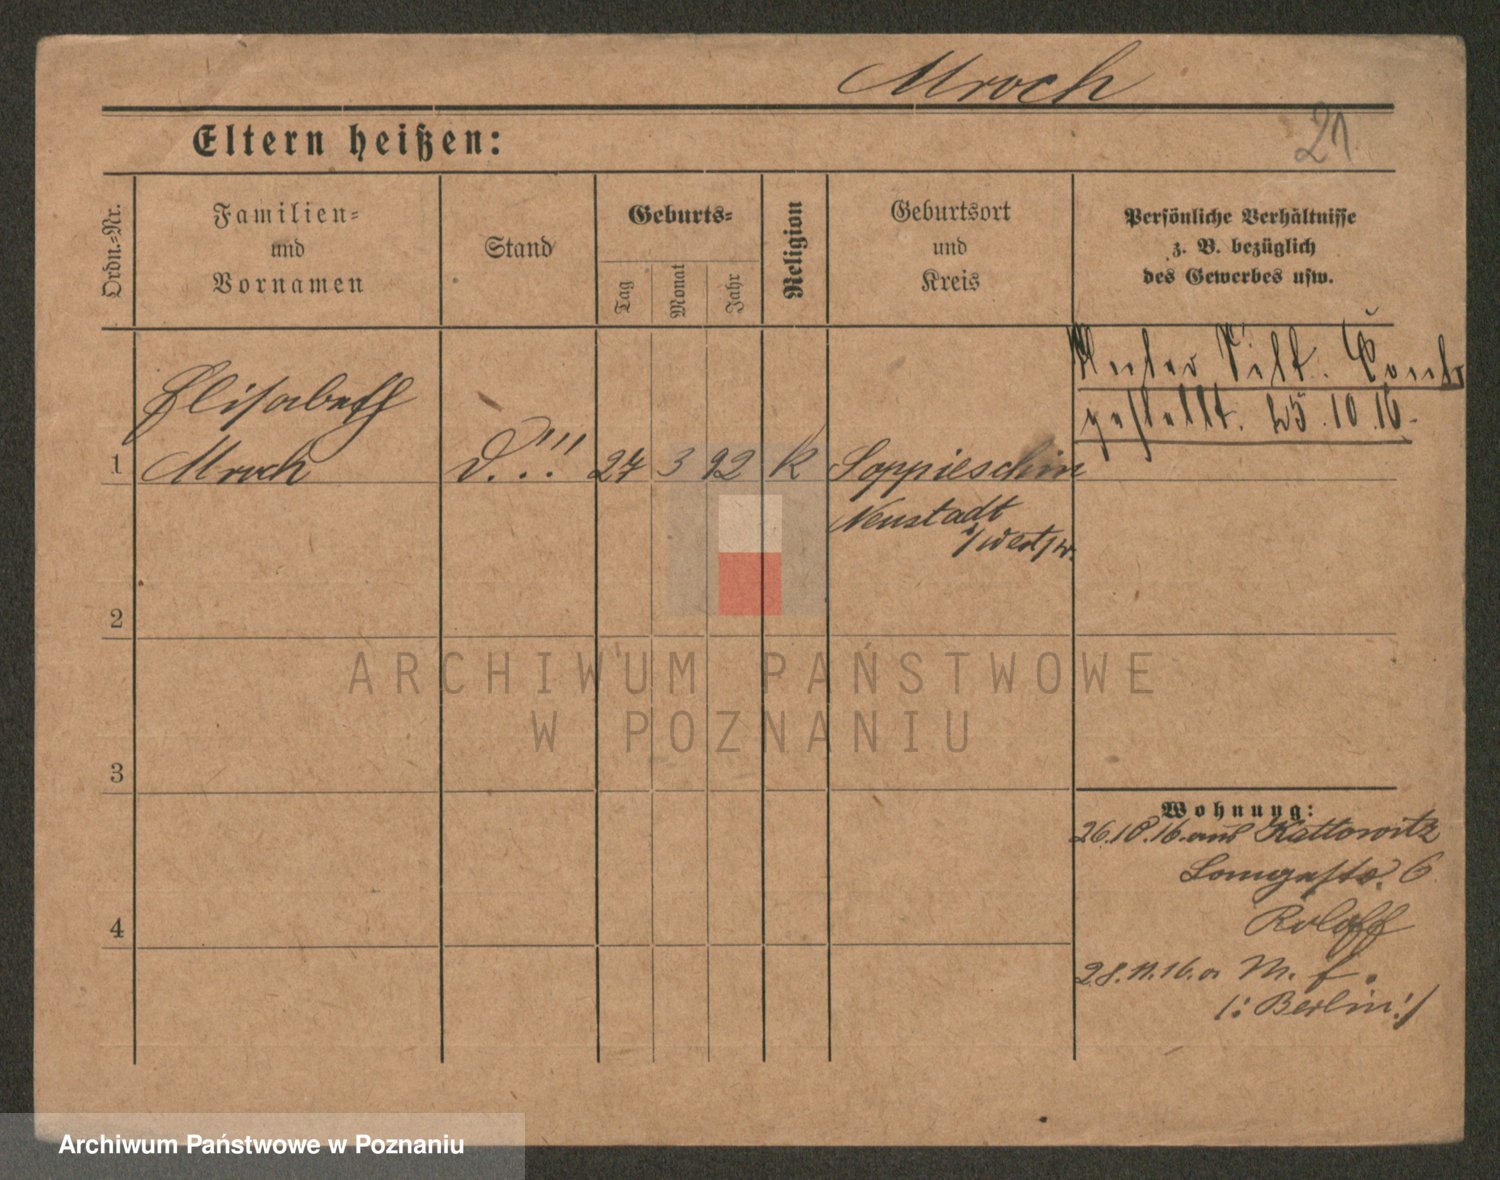 Mroch
21
Eltern heißen:
Ordn.-Nr.
Familien-
und
Vornamen
Stand
Geburts-
Tag
Monat
Jahr
Religion
Geburtsort
und
Kreis
Persönliche Verhältnisse
z. B. bezüglich
des Gewerbes usw.
Unter Sitt. Contr
gestellt. 25.10.16.
Elisabeth
1 Mroch D. !!! 27 3 92 k Soppieschin
Neustadt
i/Westpr.
2
ARCHIWUM PAŃSTWOWE
W POZNANIU
3
Wohnung:
26.10.16. aus Kattowitz
6
Roloff
4
28.11.16. a M. f.
/: Berlin :/
Archiwum Państwowe w Poznaniu